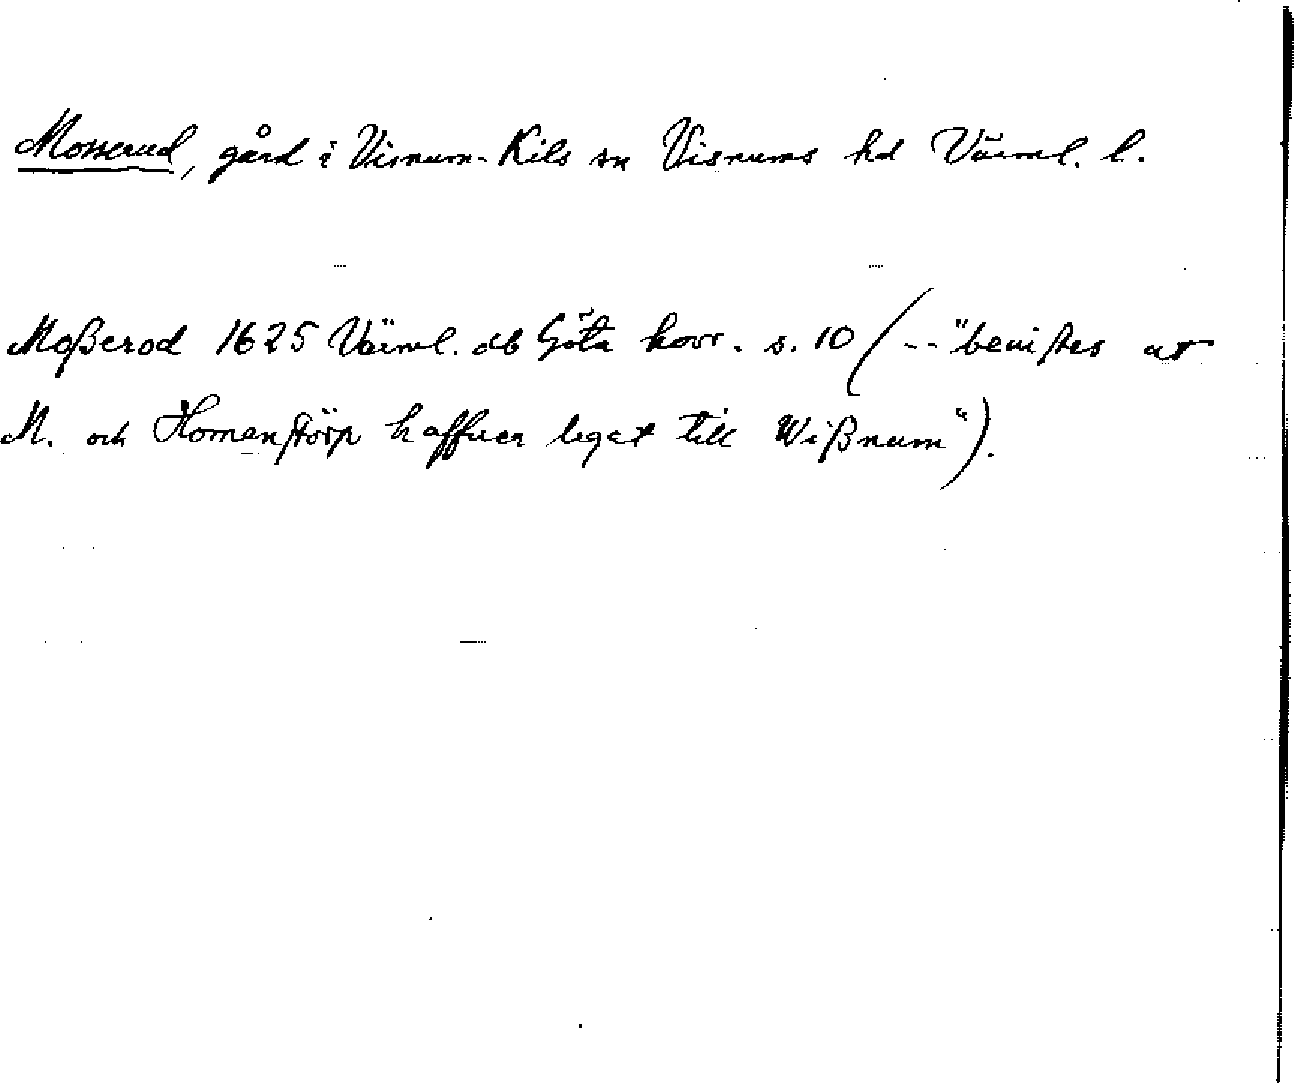 Mosserud, gård i Visnum-Kils sn Visnums hd Värml. l.
Moßerod 1625 Värml. db Göta hovr. s. 10 (-- "bevistes at
M. och Homanstörp haffuer leget till Wißnum").